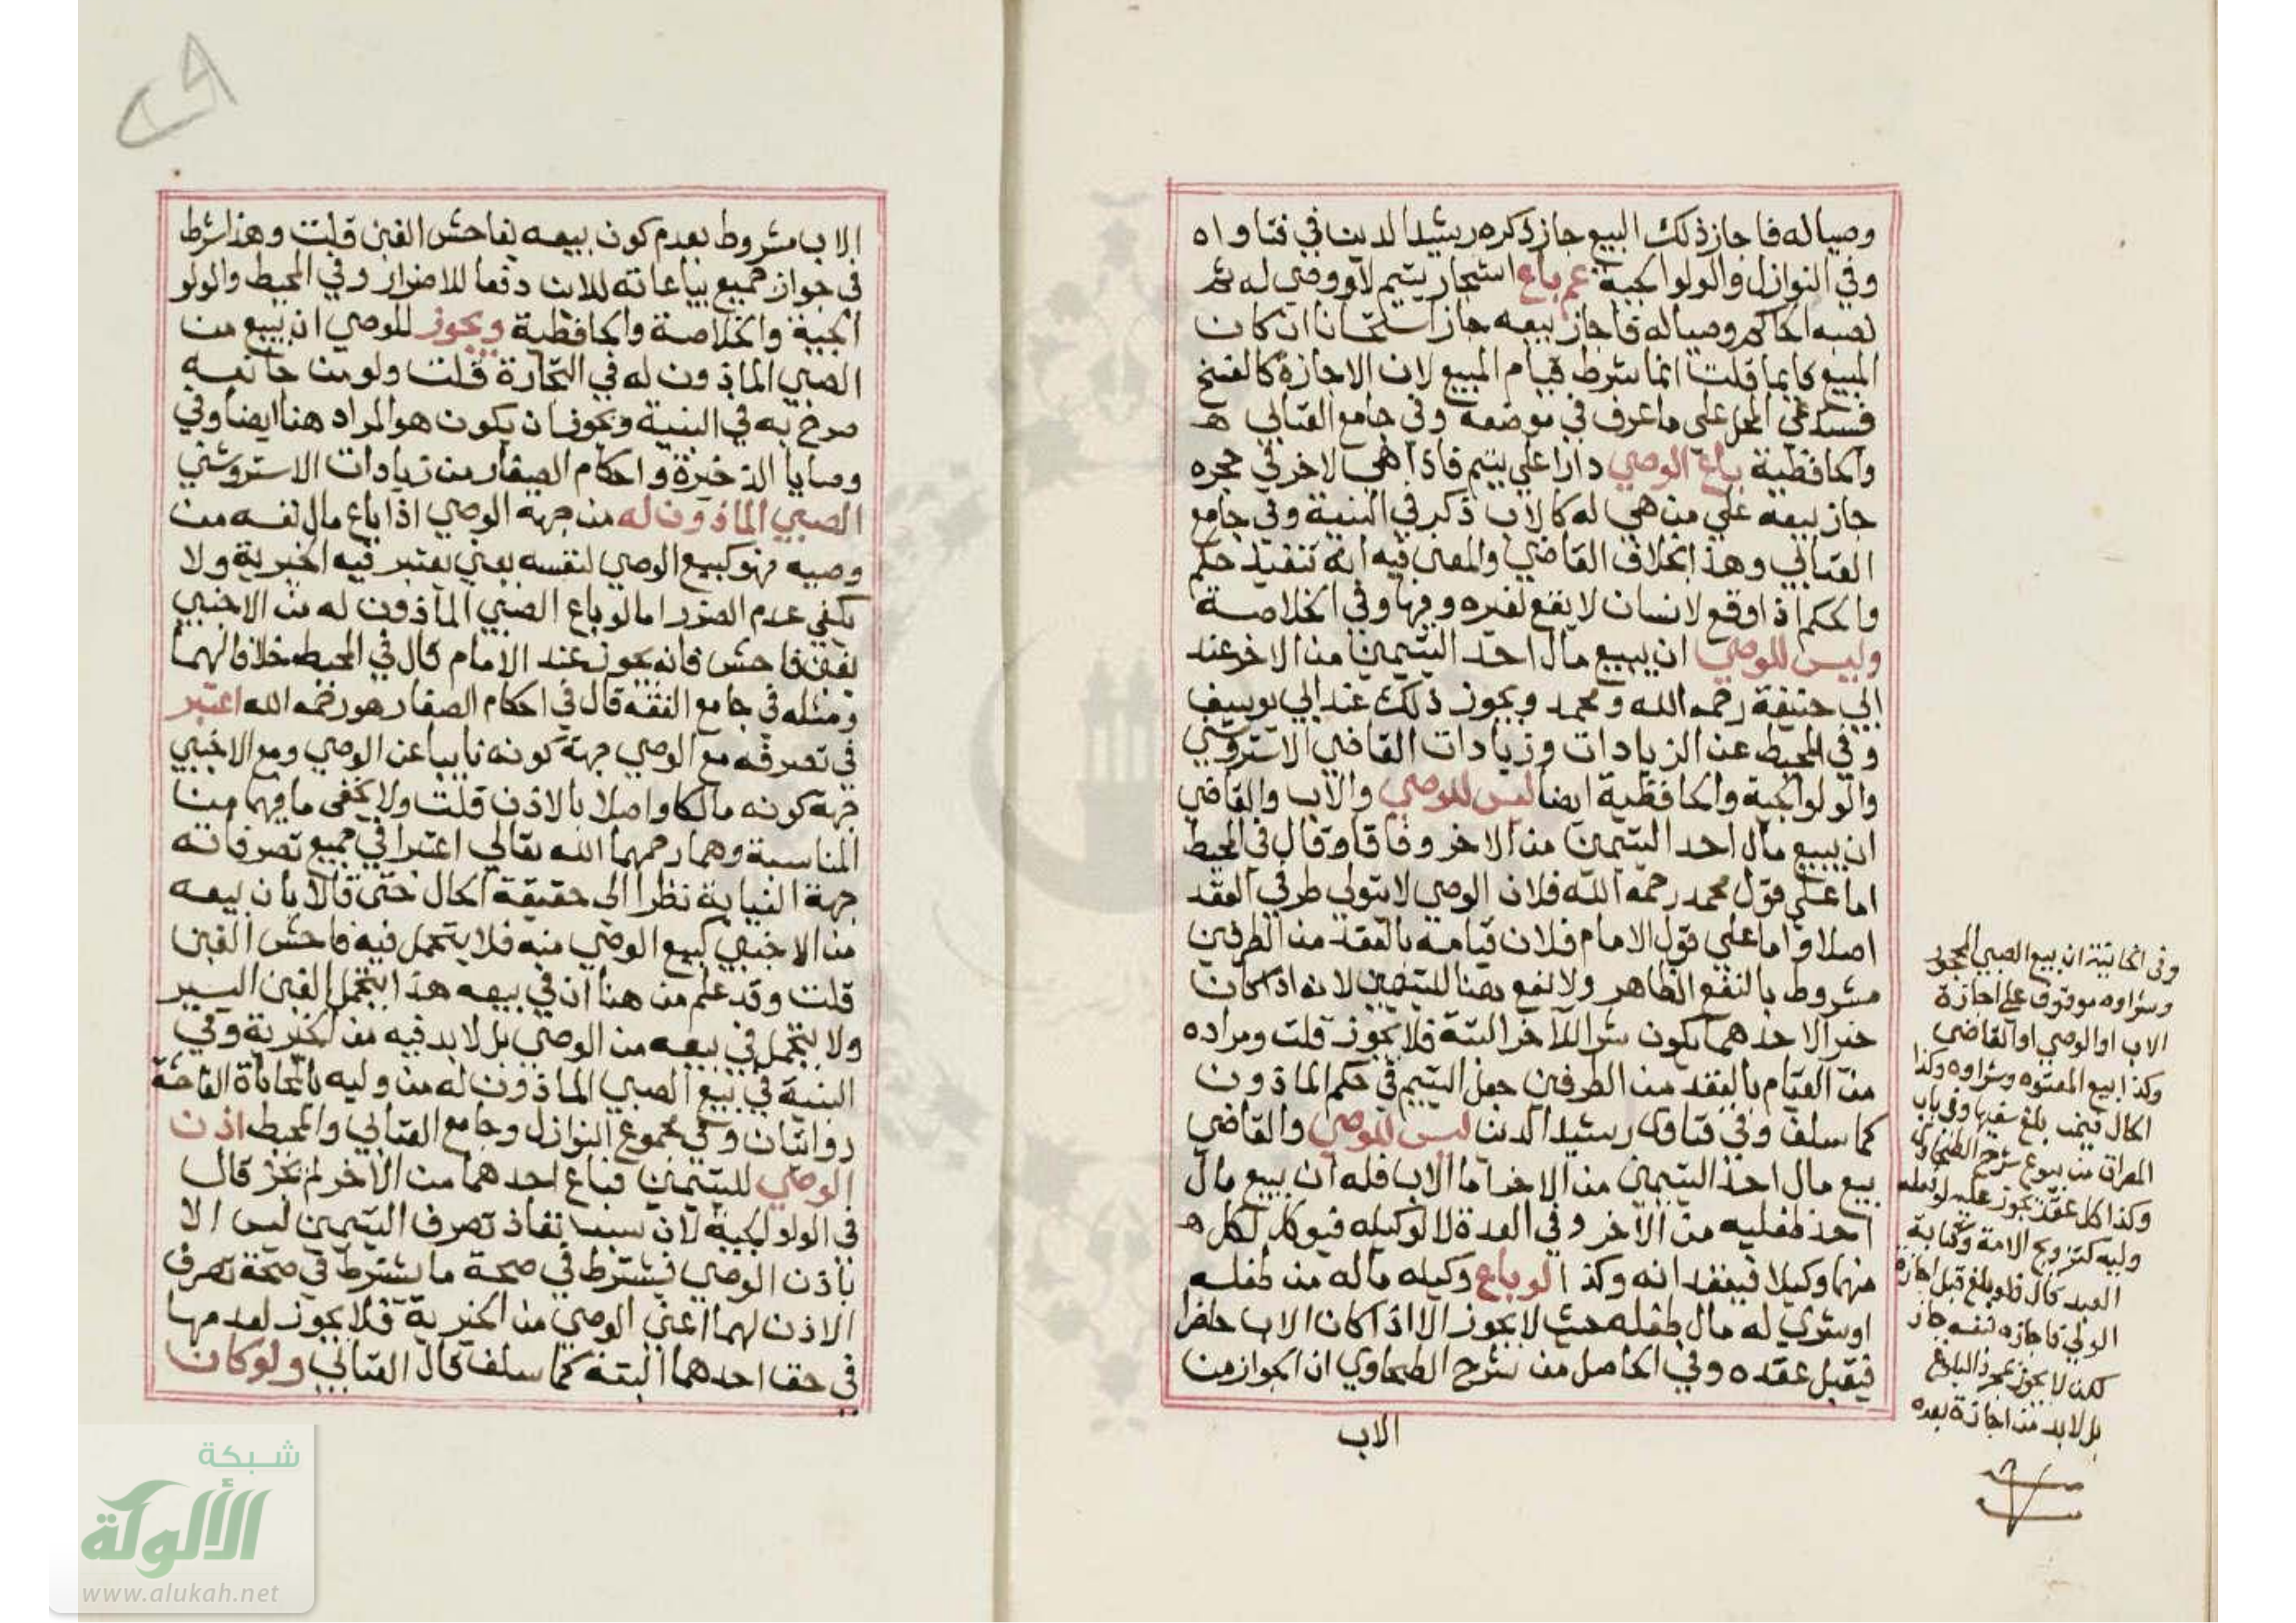 وصيا له فاجاز ذلك البيع جاز ذكره رشيد الدين في فتاواه
وفي النوازل والولوالجية عم باع اشجار يتيم لاو وصي له ثم
نصبه الحاكم وصيا له فاجاز بيعه جاز استحسانا ان كان
المبيع قايما قلت انما شرط قيام المبيع لان الاجازة كالفسخ
علي المحل علي ما عرف في موضعه وفي جامع العتابي
والحافظية باع الوصي دارا علي يتيم فاذا هي لاخر في حجره
جاز بيعه علي من هي له كالاب ذكر في البنية وفي جامع
العتابي وهذا بخلاف القاضي والمعنى فيه انه تنفيذ حكم
والحكم اذا وقع لانسان لا يقع لغيره وفيها وفي الخلاصة
وليس للوصي ان يبيع مال احد اليتيمين من الاخر عند
ابي حنيفة رحمه الله ومحمد ويجوز ذلك عند ابي يوسف
وفي المحيط عن الزيادات وزيادات القاضي الاستروشني
والولوالجية والحافظية ايضا ليس للوصي والاب والقاضي
ان يبيع مال احد اليتيمين من الاخر وفاقا وقال في المحيط
اما علي قول محمد رحمه الله فلان الوصي لا يتولي طرفي العقد
اصلا واما علي قول الامام فلان قيامه بالعقد من الطرفين
مشروط بالنفع الظاهر ولا نفع هنا لليتيمين لانه اذا كان
خيرا لاحدهما يكون شرا للاخر البتة فلا يجوز قلت ومراده
من القيام بالعقد من الطرفين جعل اليتيم في حكم الماذون
كما سلف وفي فتاوى رشيد الدين ليس للوصي والقاضي
بيع مال احد اليتيمين من الاخر اما الاب فله ان يبيع مال
احد طفليه من الاخر وفي العدة لا لوكيله فيوكل لكل
منهما وكيلا فيعقدانه وكذا لو باع وكيله ماله من طفله
او شري له مال طفله حيث لا يجوز الا اذا كان الاب حاضرا
فيقبل عقده وفي الحاصل من شرح الطحاوي ان الجواز من
الاب
وفي الخانية ان بيع الصبي المحجور
وشراوه موقوف على اجازة
الاب او الوصي او القاضي
وكذا بيع المعتوه وشراوه وكذا
الحال فيمن بلغ سفيها وفي باب
من بيوع شرح الطحاوي
وكذا كل عقد يجوز عليه لو فعله
وليه كتزويج الامة وكتابة
العبد قال فلو بلغ قبل اجازة
الولي فاجازه بنفسه جاز
لكن لا يجوز بمجرد البلوغ
بل لا بد من اجازة بعده
الاب مشروط بعدم كون بيعه بفاحش الغبن قلت وهذا شرط
في جواز جميع بياعاته للابن دفعا للاضرار وفي المحيط والولو
الجية والخلاصة والحافظية ويجوز للوصي ان يبيع من
الصبي الماذون له في التجارة قلت ولو من جانبه
صرح به في البنية ويجوز ان يكون هو المراد هنا ايضا وفي
وصايا الذخيرة واحكام الصغار من زيادات الاستروشني
الصبي الماذون له من جهة الوصي اذا باع مال نفسه من
وصيه فهو كبيع الوصي لنفسه يعني يعتبر فيه الخيرية ولا
يكفي عدم الضرر اما لو باع الصبي الماذون له من الاجنبي
بغبن فاحش فانه يجوز عند الامام قال في المحيط خلافا لهما
ومثله في جامع الفقه قال في احكام الصغار هو رحمه الله اعتبر
في تصرفه مع الوصي جهة كونه نايبا عن الوصي ومع الاجنبي
جهة كونه مالكا واصلا بالاذن قلت ولا يخفى ما فيهما من
المناسبة وهما رحمهما الله تعالي اعتبرا في جميع تصرفاته
جهة النيابة نظرا الى حقيقة الحال حتى قالا بان بيعه
من الاجنبي كبيع الوصي منه فلا يتحمل فيه فاحش الغبن
قلت وقد علم من هنا ان في بيعه هذا يتحمل الغبن اليسير
ولا يتحمل في بيعه من الوصي بل لا بد فيه من الخيرية وفي
البنية في بيع الصبي الماذون له من وليه بالمحاباة الفاحشة
روايتان وفي مجموع النوازل وجامع العتابي والمحيط اذن
الوصي لليتيمين فباع احدهما من الاخر لم يجز قال
في الولوالجية لان سبب نفاذ تصرف اليتيمين ليس الا
باذن الوصي فيشترط في صحة ما يشترط في صحة تصرف
الاذن لهما اعني الوصي من الخيرية فلا يجوز لعدمها
في حق احدهما البتة كما سلف قال العتابي ولو كان
شبكة
الألوكة
www.alukah.net